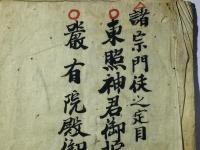 諸宗門徒之定目
東照神君御
嚴有院殿御